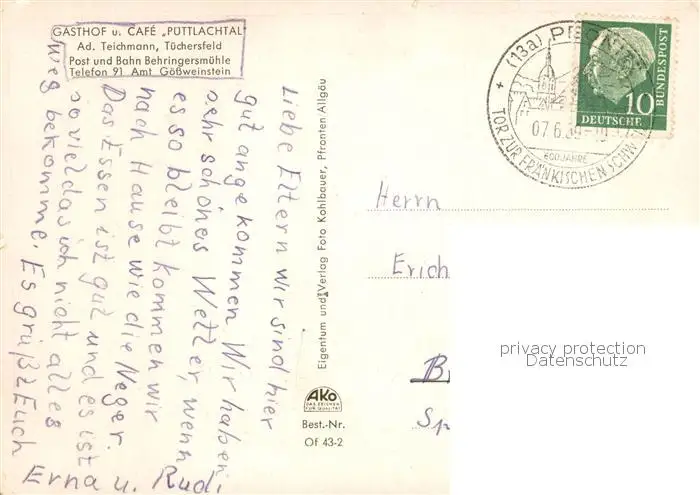 GASTHOF u. CAFÉ „PÜTTLACHTAL"
Ad. Teichmann, Tüchersfeld
Post und Bahn Behringersmühle
Telefon 91 Amt Gößweinstein
Liebe Eltern wir sind hier
gut angekommen. Wir haben
sehr schönes Wetter, wenn
es so bleibt kommen wir
nach Hause wie die Neger.
Das Essen ist gut und es ist
so viel das ich nicht alles
weg bekomme. Es grüßt Euch
Erna u. Rudi,
Eigentum und Verlag Foto Kohlbauer, Pfronten/Allgäu
AKO
DAS ZEICHEN
FÜR QUALITÄT
Best.-Nr.
Of 43-2
(13a)
07.6.
800 JAHRE
TOR ZUR FRÄNKISCHEN SCHW
10
DEUTSCHE
BUNDESPOST
Herrn
Erich
privacy protection
Datenschutz